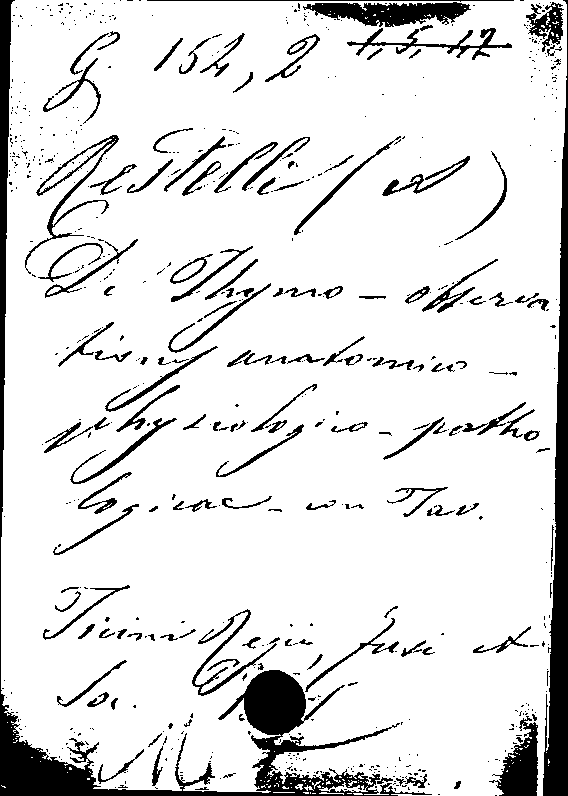 G. 152, 2 1, 5, 17
Restelli (A)
De Thymo - observa-
tiones anatomico -
physiologico - patho-
logicae - con Tav.
Ticini Regii, Fusi et
Soc.